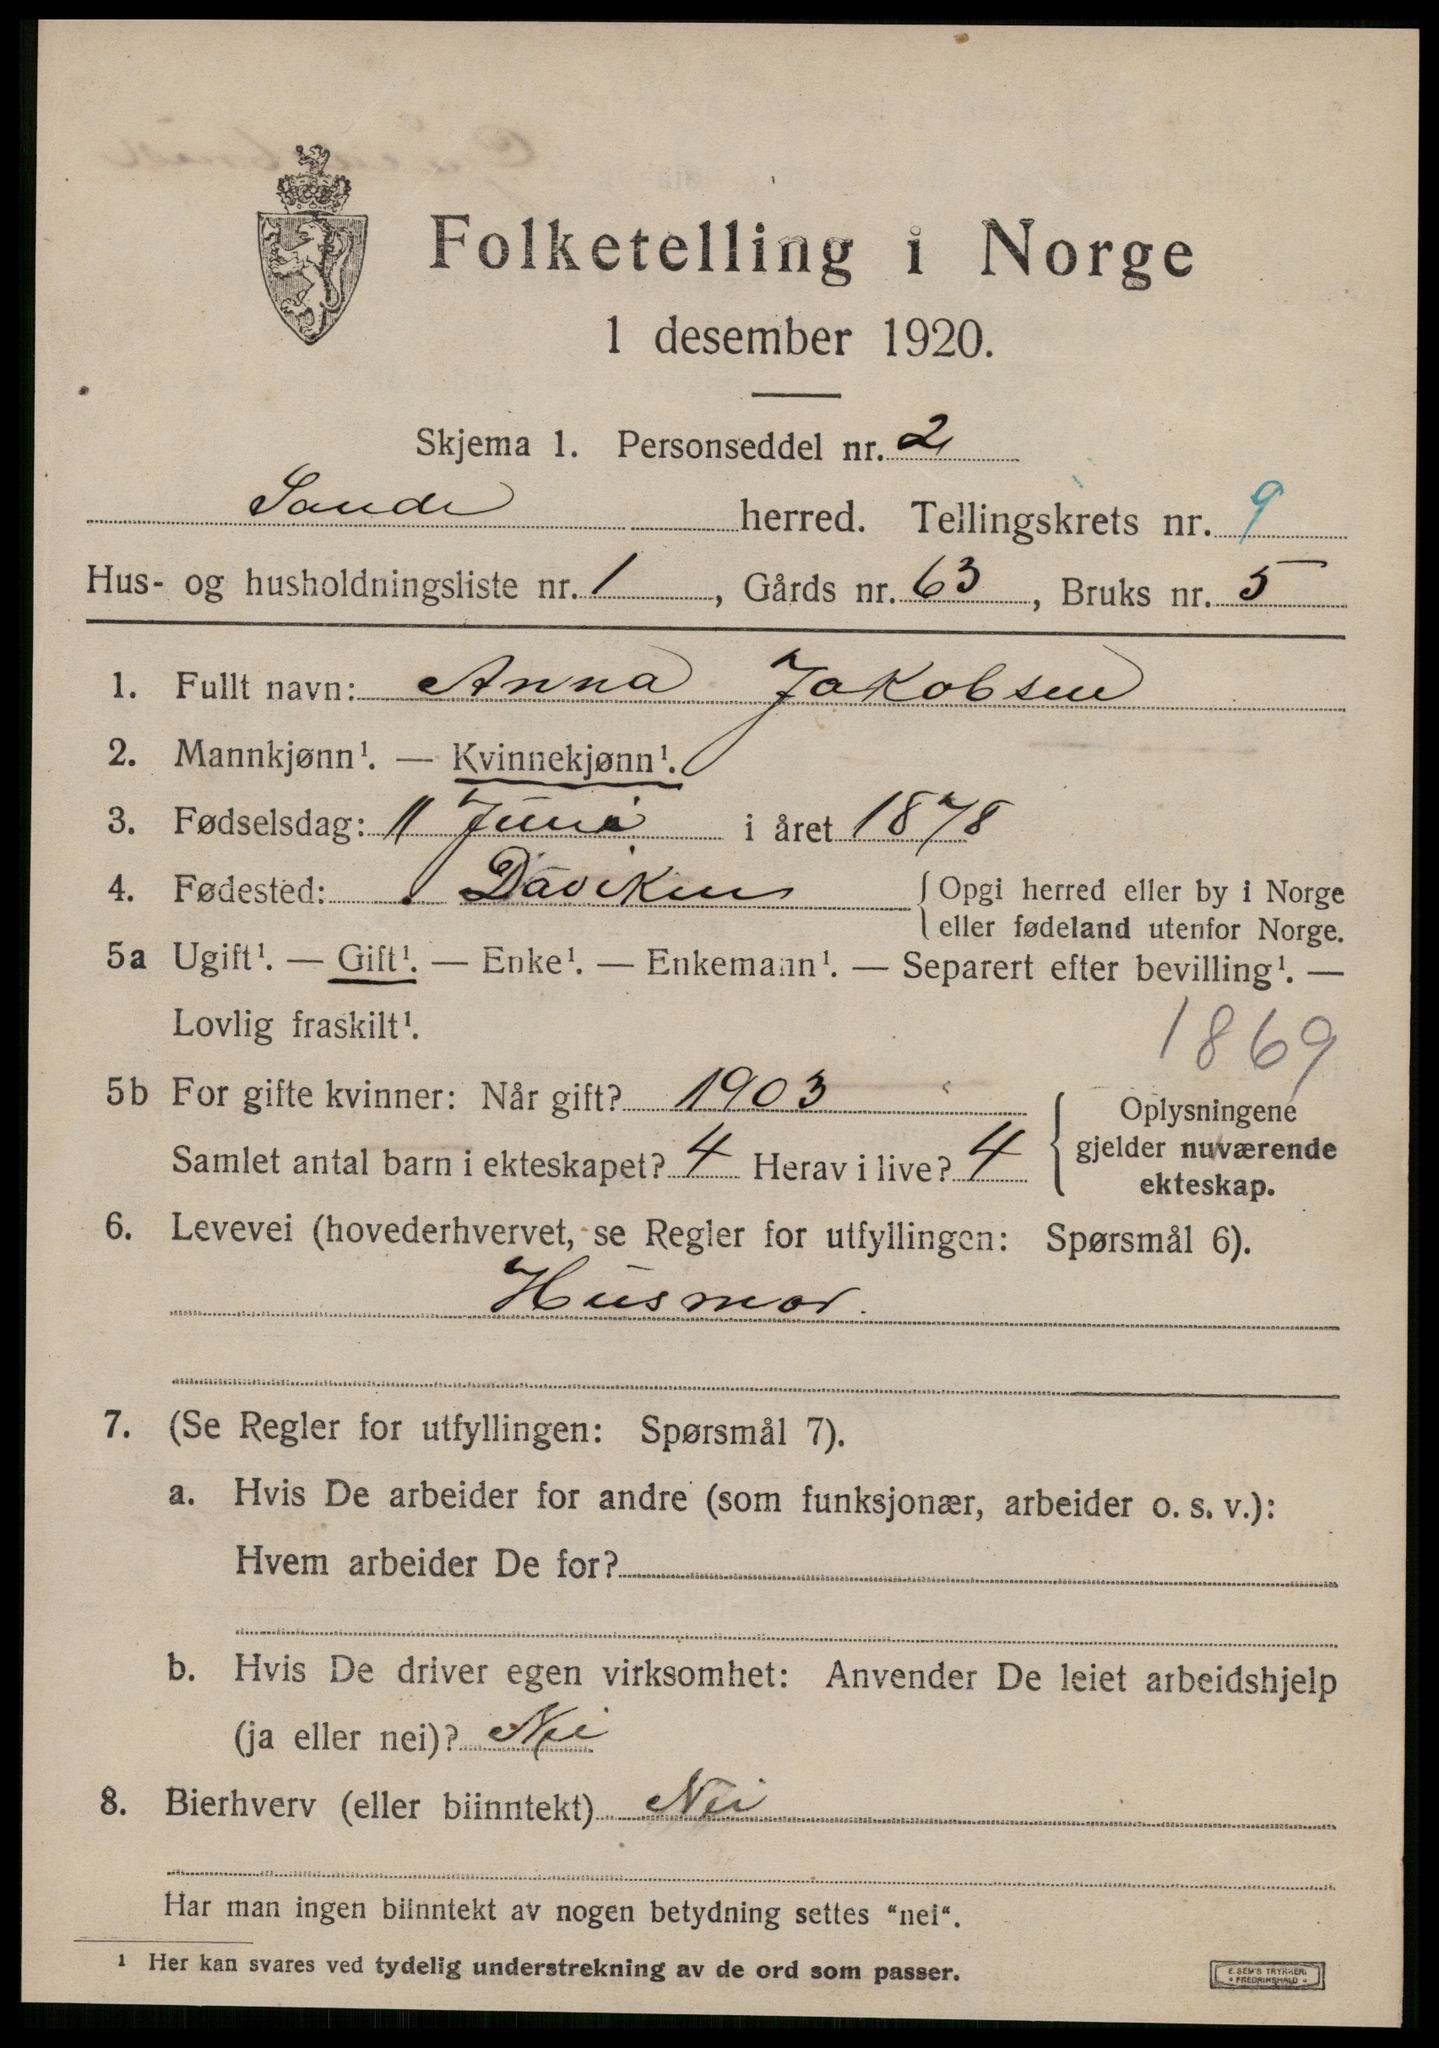 Folketelling i Norge
1 desember 1920.
Skjema 1. Personseddel nr. 2
Sande herred. Tellingskrets nr. 9
Hus- og husholdningsliste nr. 1, Gårds nr. 63, Bruks nr. 5
1. Fullt navn: Anna Jakobsen
2. Mannkjønn¹. — Kvinnekjønn¹.
3. Fødselsdag: 11 Juni i året 1878
4. Fødested: Daviken { Opgi herred eller by i Norge
eller fødeland utenfor Norge.
5a Ugift¹. — Gift¹. — Enke¹. — Enkemann¹. — Separert efter bevilling¹. —
Lovlig fraskilt¹.
1869
5b For gifte kvinner: Når gift? 1903
Samlet antal barn i ekteskapet? 4 Herav i live? 4
{ Oplysningene
gjelder nuværende
ekteskap.
6. Levevei (hovederhvervet, se Regler for utfyllingen: Spørsmål 6).
Husmor.
7. (Se Regler for utfyllingen: Spørsmål 7).
a. Hvis De arbeider for andre (som funksjonær, arbeider o. s. v.):
Hvem arbeider De for?
b. Hvis De driver egen virksomhet: Anvender De leiet arbeidshjelp
(ja eller nei)? Nei
8. Bierhverv (eller biinntekt) Nei
Har man ingen biinntekt av nogen betydning settes "nei".
¹ Her kan svares ved tydelig understrekning av de ord som passer.
E. SEM'S TRYKKERI
FREDRIKSHALD